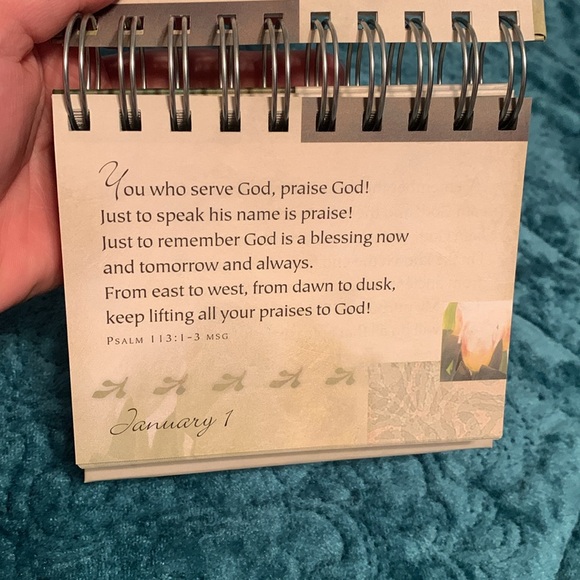 You who serve God, praise God!
Just to speak his name is praise!
Just to remember God is a blessing now
and tomorrow and always.
From east to west, from dawn to dusk,
keep lifting all your praises to God!
PSALM 113:1–3 MSG
January 1